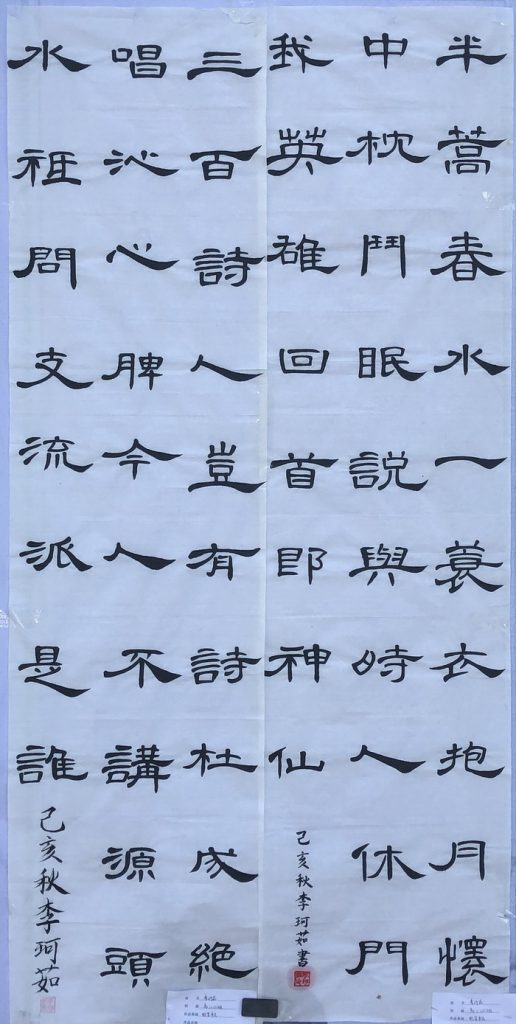 半蒿春水一蓑衣抱月懷
中枕鬥眠說與時人休門
我英雄回首即神仙
己亥秋李珂茹書
三百詩人豈有詩杜成絕
唱沁心脾今人不講源頭
水祗問支流派是誰
己亥秋李珂茹